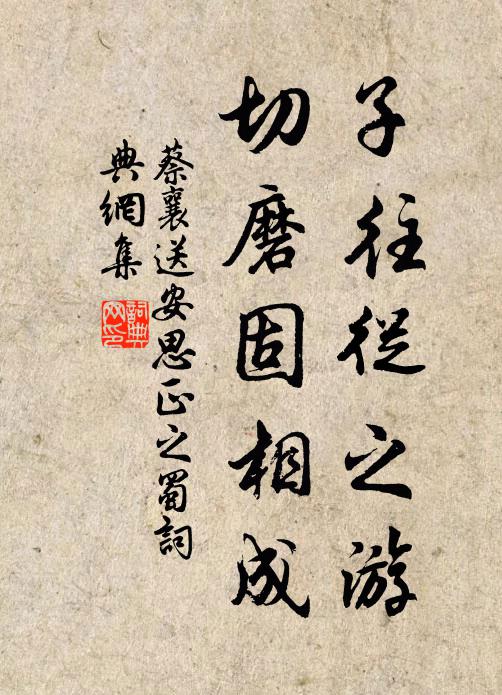 子往從之游
切磨固相成
蔡襄送安思正之蜀詞
典網集
詞典網印